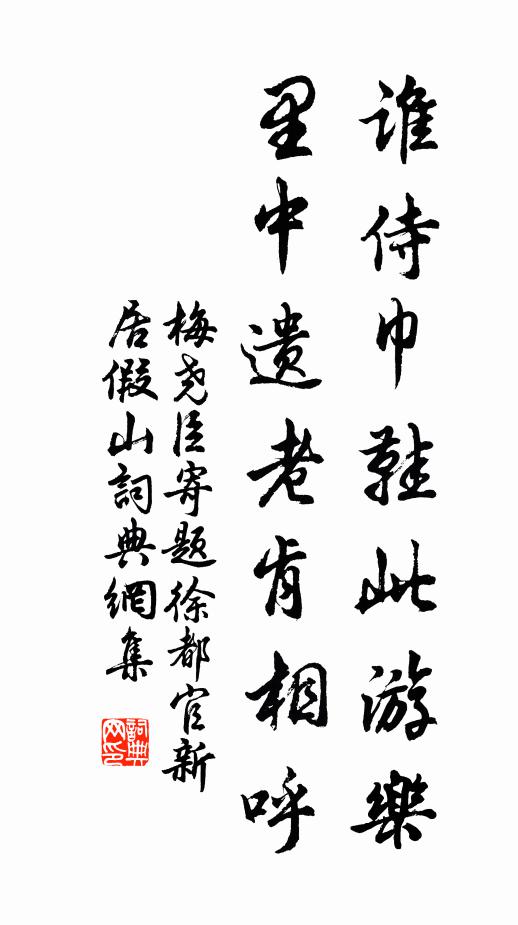 谁侍巾鞋此游樂
里中遗老肯相呼
梅尧臣寄题徐都官新
居假山詞典網集
詞典
网印